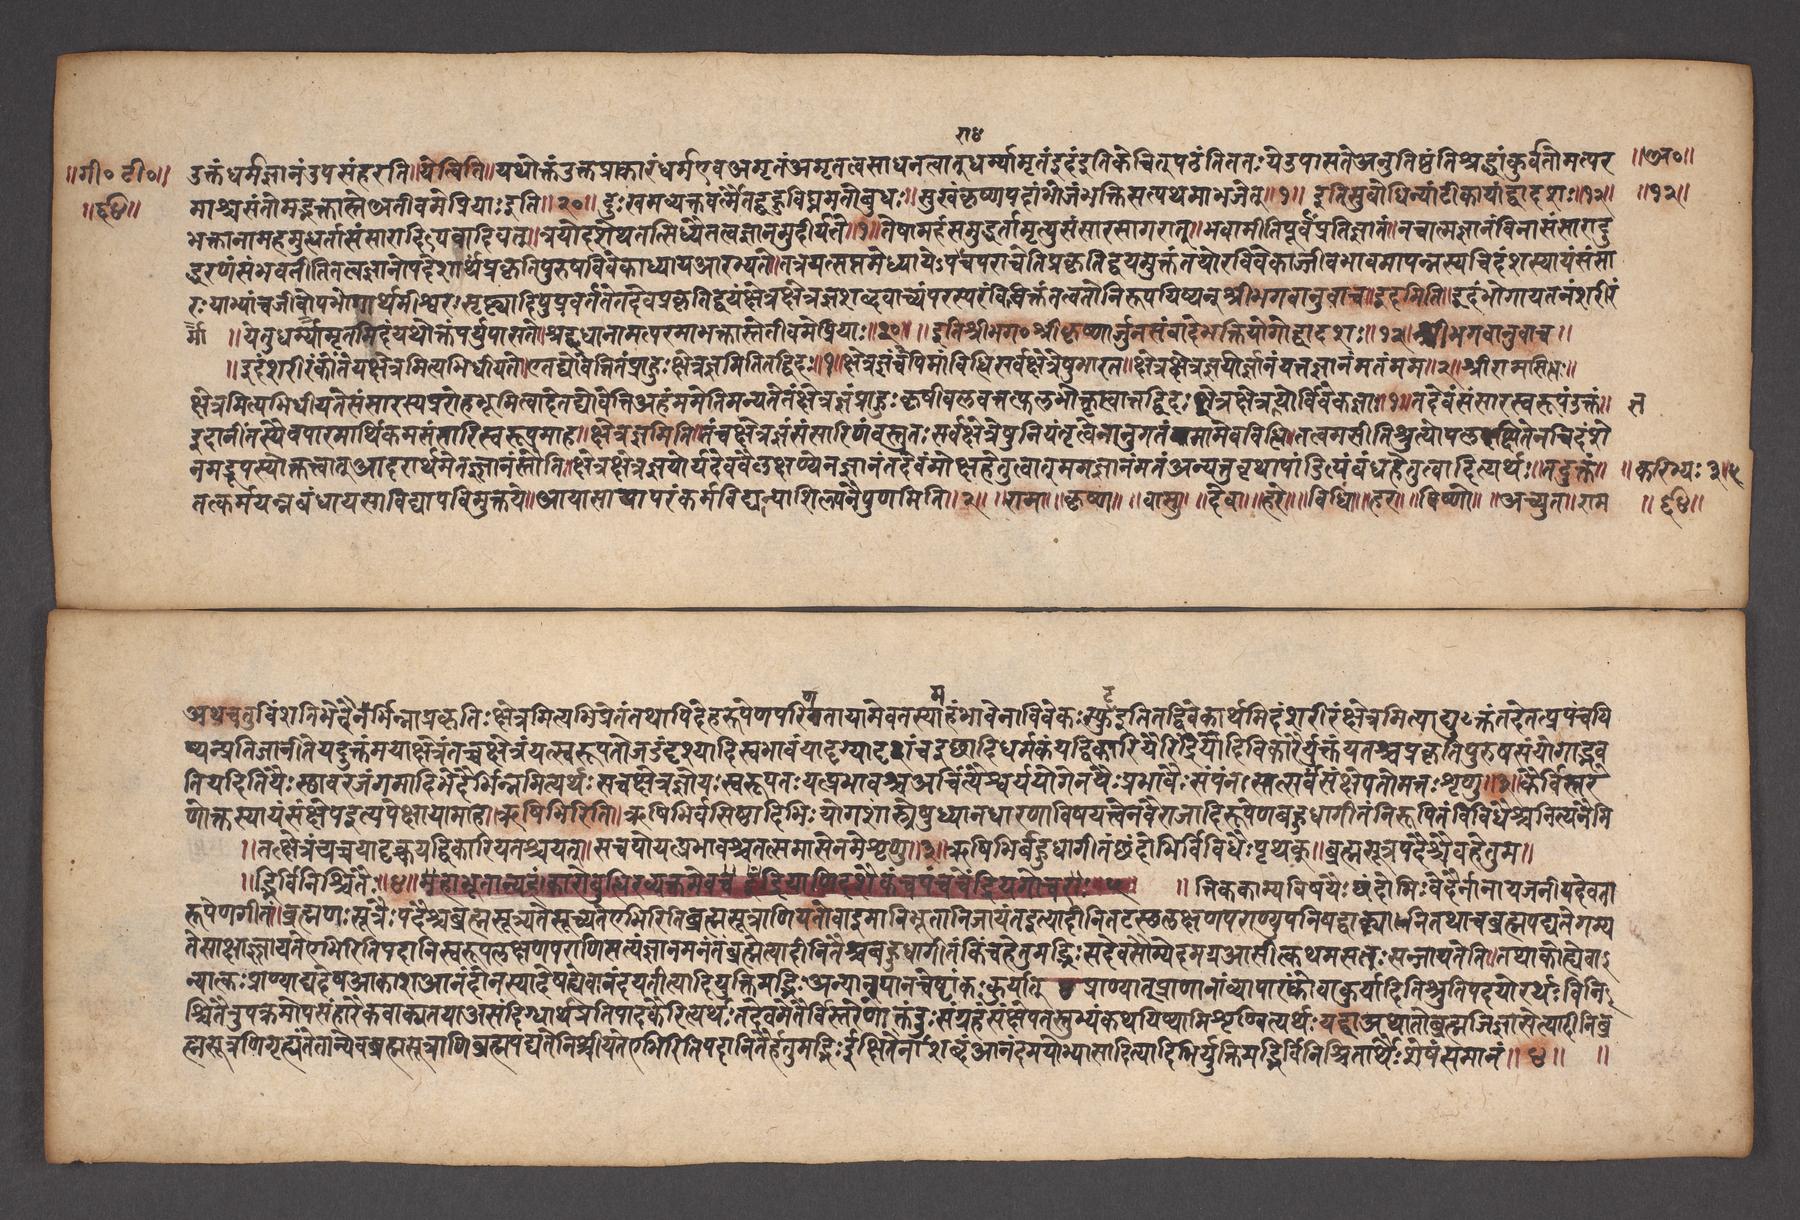 राध
॥गी० टी०॥ उक्तं धर्मज्ञानं उपसंहरति॥येत्विति॥यथोक्तं उक्तप्राकारं धर्मएवअमृतं अमृतत्वसाधनत्वात् धर्म्यामृतं इदं इति केचित् पठंति ततः ये उपासते अनुतिष्ठंति श्रद्धां कुर्वंतो मत्पर ॥अ०॥
॥६४॥ माश्च संतो मद्भक्तास्ते अतीव मे प्रियाः इति॥२०॥ दुःखमव्यक्तवर्त्मैतद्बहुविघ्नमतो बुधः॥सुखं कृष्णपदांभोजं भक्तिसत्पथमाभजेत्॥१॥ इति सुबोधिन्यां टीकायां द्वादशः॥१२॥ ॥१२॥
भक्तानामहमुद्धर्ता संसारादित्यवादि यत्॥त्रयोदशेथ तत्सिध्यै तत्वज्ञानमुदीर्यते॥१॥तेषामहं समुद्धर्ता मृत्युसंसारसागरात्॥भवामीति पूर्वं प्रतिज्ञातं॥न चात्मज्ञानं विना संसारादु
द्धरणं संभवतीति तत्वज्ञानोपदेशार्थं प्रकृतिपुरुषविवेकाध्याय आरभ्यते॥तत्र यत्सप्तमेध्याये ऽपरा परा चेति प्रकृतिद्वयमुक्तं तयोरविवेकाज्जीवभावमापन्नस्य चिदंशस्यायं संसा
रः याभ्यां च जीवोपभोगार्थमीश्वरः सृष्ट्यादिषु प्रवर्तते तदेव प्रकृतिद्वयं क्षेत्रक्षेत्रज्ञशब्दवाच्यं परस्परं विविक्तं तत्वतो निरूपयिष्यन् श्रीभगवानुवाच॥इदमिति॥इदं भोगायतनं शरीरं
॥ये तु धर्म्यामृतमिदं यथोक्तं पर्युपासते॥श्रद्दधाना मत्परमा भक्तास्तेतीव मे प्रियाः॥२०॥ ॥इति श्रीभग० श्रीकृष्णार्जुनसंवादे भक्तियोगो द्वादशः॥१२॥ श्रीभगवानुवाच॥
॥इदं शरीरं कौंतेय क्षेत्रमित्यभिधीयते॥एतद्यो वेत्ति तं प्राहुः क्षेत्रज्ञमिति तद्विदः॥१॥क्षेत्रज्ञं चापि मां विद्धि सर्वक्षेत्रेषु भारत॥क्षेत्रक्षेत्रज्ञयोर्ज्ञानं यत्तज्ज्ञानं मतं मम॥२॥श्रीरामा
क्षेत्रमित्यभिधीयते संसारस्य प्ररोहभूमित्वात् एतद्यो वेत्ति अहं ममेति मन्यते तं क्षेत्रज्ञं प्राहुः कृषीवलवत् तत्फलभोक्तृत्वात् तद्विदः क्षेत्रक्षेत्रज्ञयोर्विवेकज्ञाः॥१॥तदेवं संसारस्वरूपं उक्तं॥ त
इदानीं तस्यैव पारमार्थिकमसंसारिस्वरूपमाह॥क्षेत्रज्ञमिति॥तं च क्षेत्रज्ञं संसारिणं वस्तुतः सर्वक्षेत्रेषु नियंतृत्वेनानुगतं मामेव विद्धि॥तत्वमसीति श्रुत्योपलक्षितेन चिदंशे
न मद्रूपस्योक्तत्वात् आदरार्थमेतज्ज्ञानं स्तौति॥क्षेत्रक्षेत्रज्ञयोर्यदेव वैलक्षण्येन ज्ञानं तदेव मोक्षहेतुत्वात् मम ज्ञानं मतं अन्यत्तु वृथा पांडित्यं बंधहेतुत्वादित्यर्थः॥तदुक्तं॥
तत्कर्म यन्न बंधाय सा विद्या या विमुक्तये॥आयासायापरं कर्म विद्यान्या शिल्पनैपुणमिति॥२॥ ॥राम॥ ॥कृष्ण॥ ॥वासु॥ ॥देवा॥ ॥हरे॥ ॥विधि॥ ॥हर॥ ॥विष्णो॥ ॥अच्युत॥राम ॥६४॥
अथ चतुर्विंशतिभेदैर्भिन्ना प्रकृतिः क्षेत्रमित्यभिप्रेतं तथापि देहरूपेण परिणतायामेव तस्यामहंभावेन अविवेकः स्फुट इति तद्विवेकार्थमिदं शरीरं क्षेत्रमित्याद्युक्तं तदेतत्प्रपंचयि
ष्यन् प्रतिजानीते यदुक्तं मया क्षेत्रं तच्च क्षेत्रं यत्स्वरूपतो जडं दृश्यादिस्वभावं यादृग्यादृशं च इच्छादिधर्मकं यद्विकारि यैरिंद्रियादिविकारैर्युक्तं यतश्च प्रकृतिपुरुषसंयोगाद्भव
ति यदिति यैः स्थावरजंगमादिभेदैर्भिन्नमित्यर्थः स च क्षेत्रज्ञो यः स्वरूपतः यत्प्रभावश्च अचिंत्यैश्वर्ययोगेन यैः प्रभावैः संपन्नः तत्सर्वं संक्षेपतो मत्तः शृणु॥३॥कैर्विस्तरे
णोक्तस्यायं संक्षेप इत्यपेक्षायामाह॥ऋषिभिरिति॥ऋषिभिर्वसिष्ठादिभिः योगशास्त्रेषु ध्यानधारणाविषयत्वेन वैराजादिरूपेण बहुधा गीतं निरूपितं विविधैश्च नित्यनैमि
॥तत्क्षेत्रं यच्च यादृक्च यद्विकारि यतश्च यत्॥स च यो यत्प्रभावश्च तत्समासेन मे शृणु॥३॥ऋषिभिर्बहुधा गीतं छंदोभिर्विविधैः पृथक्॥ब्रह्मसूत्रपदैश्चैव हेतुम॥
॥द्भिर्विनिश्चितैः॥४॥महाभूतान्यहंकारो बुद्धिरव्यक्तमेव च इंद्रियाणि दशैकं च पंच चेंद्रियगोचराः॥५॥ ॥त्तिककाम्यविषयैः छंदोभिः वेदैर्नानायजनीयदेवता
रूपेण गीतं॥ब्रह्मणः सूत्रैः पदैश्च ब्रह्म सूत्र्यते सूच्यते एभिरिति ब्रह्मसूत्राणि यतो वा इमानि भूतानि जायंत इत्यादीनि तटस्थलक्षणपराण्युपनिषद्वाक्यानि तथा च ब्रह्म पद्यते गम्य
ते साक्षाज्ज्ञायते एभिरिति पदानि स्वरूपलक्षणपराणि सत्यं ज्ञानमनंतं ब्रह्मेत्यादीनि तैश्च बहुधा गीतं किं च हेतुमद्भिः सदेव सोम्येदमग्र आसीत् कथमसतः सज्जायेतेति॥तथा को ह्येवा
न्यात्कः प्राण्याद्यदेष आकाश आनंदो न स्यादेष ह्येवानंदयतीत्यादियुक्तिमद्भिः अन्यात् अपानचेष्टां कः कुर्यात् प्राण्यात् प्राणानां व्यापारं को वा कुर्यादिति श्रुतिपदयोरर्थः विनि
श्चितैः उपक्रमोपसंहारैकवाक्यतया असंदिग्धार्थप्रतिपादकैरित्यर्थः तदेवमेतैर्विस्तरेणोक्तं दुःसंग्रहं संक्षेपतस्तुभ्यं कथयिष्यामि शृण्वित्यर्थः यद्वा अथातो ब्रह्मजिज्ञासेत्यादीनि ब्र
ह्मसूत्राणि गृह्यंते तान्येव ब्रह्मसूत्राणि ब्रह्म पद्यते निश्चीयते एभिरिति पदानि तैर्हेतुमद्भिः ईक्षतेर्नाशब्दं आनंदमयोभ्यासादित्यादिभिर्युक्तिमद्भिर्विनिश्चितार्थैः शेषं समानं॥४॥ ॥